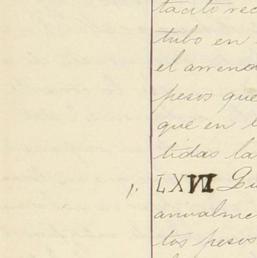 tacito rec
tubo en
el arrend
pesos que
que en l
tidas la
1. LXVI Qu
anualme
tos pesos